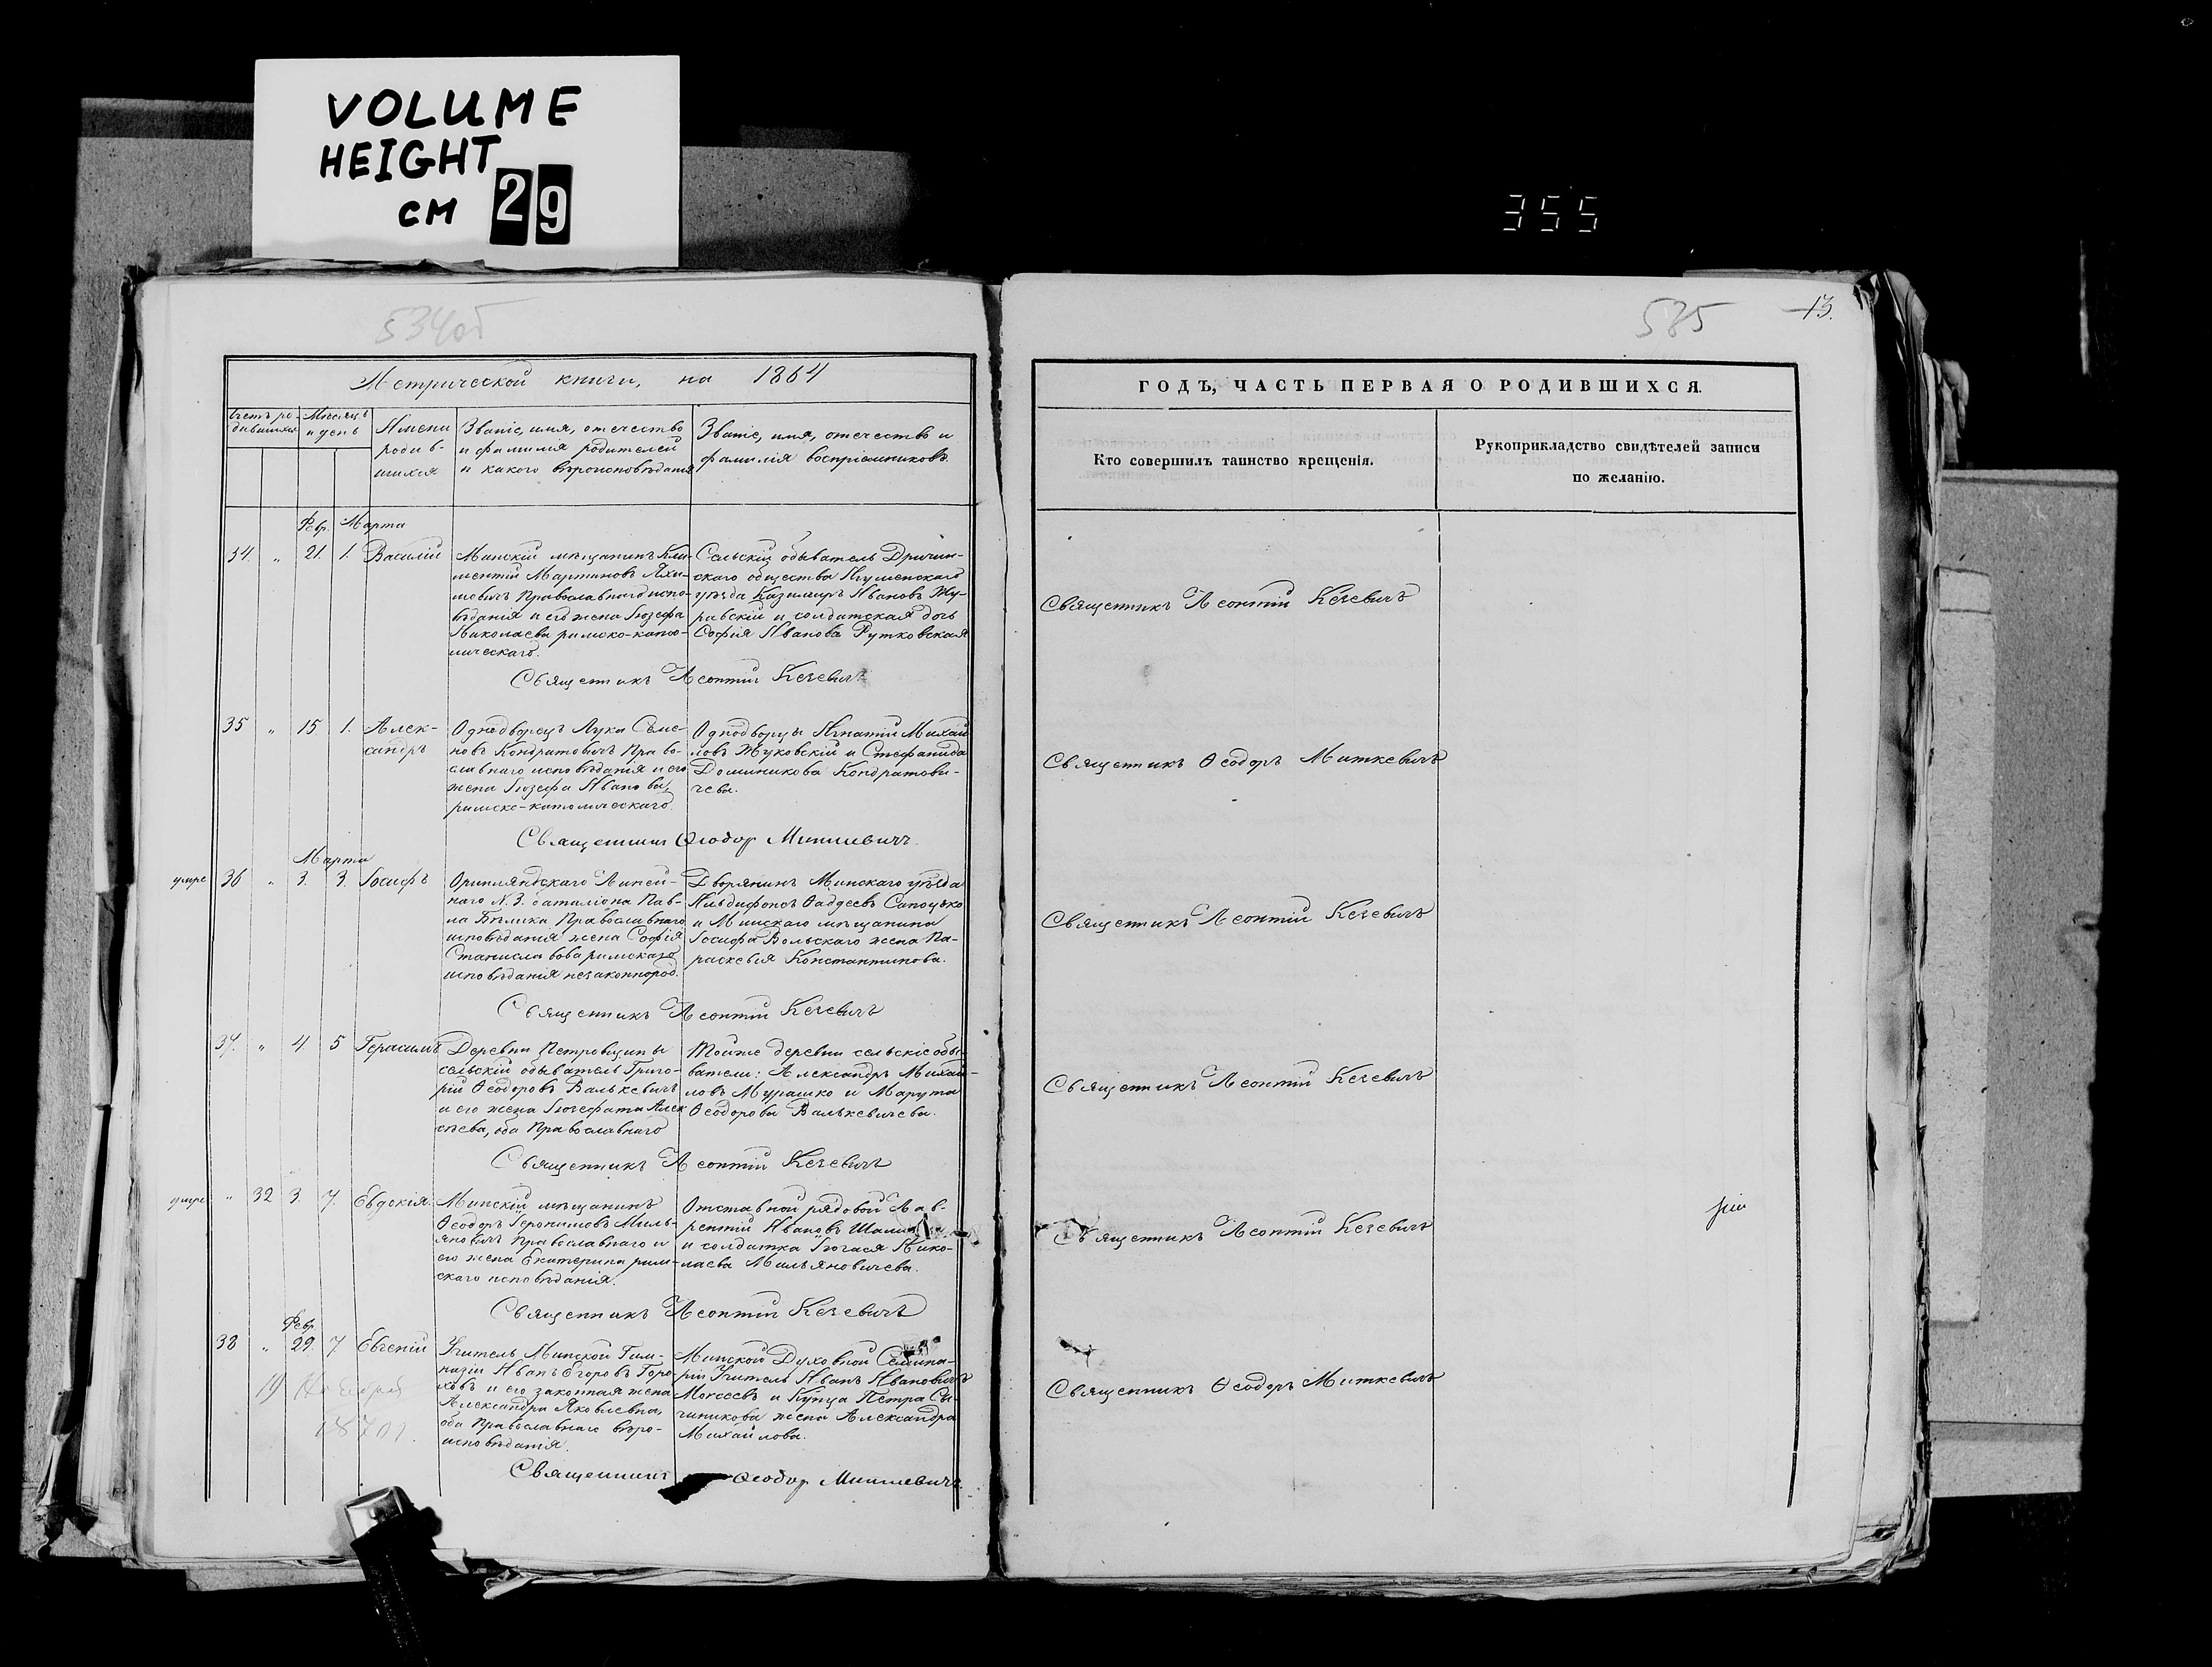 VOLUME
HEIGHT
CM 29
355
534об
585
13.
Метрической книги, на 1864
ГОДЪ, ЧАСТЬ ПЕРВАЯ О РОДИВШИХСЯ.
Счетъ ро-
дившихся
Мѣсяцъ
и день
Имена
родив-
шихся
Званіе, имя, отечество
и фамилія родителей
и какого вѣроисповѣданія
Званіе, имя, отечество и
фамилія воспріемниковъ.
Кто совершилъ таинство крещенія.
Рукоприкладство свидѣтелей записи
по желанію.
Февр. Марта
34. " 21. 1. Василій
Минскій мѣщанинъ Кли-
ментій Мартиновъ Яхи-
мовичъ Православнаго испо-
вѣданія и его жена Іозефа
Николаева римско-като-
лическаго.
Сельскій обыватель Дричин-
скаго общества Игуменскаго
уѣзда Казимиръ Ивановъ Жу-
равскій и солдатская дочь
Софія Иванова Рутковская
Священникъ Леонтій Кечевичъ
Священникъ Леонтій Кечевичъ
35 " 15 1. Алек-
сандръ
Однодворецъ Лука Семе-
новъ Кондратовичъ Право-
славнаго исповѣданія и его
жена Іозефа Иванова,
римско-католическаго.
Однодворцы Игнатій Михай
ловъ Жуковскій и Стефанида
Доминикова Кондратови-
чева.
Священникъ Ѳеодоръ Миткевичъ
Священникъ Ѳеодор Миткевичъ.
Марта
умре 36 " 3. 3. Іосифъ
Финляндскаго Линей-
наго N. 3. баталіона Пав-
ла Бѣлика Православнаго
исповѣданія жена Софія
Станиславова римскаго
исповѣданія незаконнород.
Дворянинъ Минскаго уѣзда
Ильдифонсъ Фаддеевъ Сапоцько
и Минскаго мѣщанина
Іосифа Вольскаго жена Па-
раскевія Константинова.
Священникъ Леонтій Кечевичъ
Священникъ Леонтій Кечевичъ
37. " 4 5 Герасимъ
Деревни Петровщины
сельскій обыватель Григо-
рій Ѳеодоровъ Валькевичъ
и его жена Іозефата Алек
сѣева, оба Православнаго
Тойже деревни сельскіе обы-
ватели: Александръ Михай-
ловъ Мурашко и Марута
Ѳеодорова Валькевичева.
Священникъ Леонтій Кечевичъ
Священникъ Леонтій Кечевичъ
умре " 32 3. 7. Евдокія.
Минскій мѣщанинъ
Ѳеодоръ Іеронимовъ Миль-
яновичъ Православнаго и
его жена Екатерина рим-
скаго исповѣданія.
Отставной рядовой Лав-
рентій Ивановъ
и солдатка Нико-
лаева Мильяновичева.
Священникъ Леонтій Кечевичъ
Священникъ Леонтій Кечевичъ
Февр.
38 " 29. 7 Евгеній
Учитель Минской Гим-
назіи Иванъ Егоровъ Горо
ховъ и его законная жена
Александра Яковлевна,
оба Православнаго вѣро-
исповѣданія.
Минской Духовной Семина-
ріи Учитель Иванъ Ивановичъ
Моисеевъ и Купца Петра Си-
чиникова жена Александра
Михайлова.
Священникъ Ѳеодоръ Миткевичъ
Священникъ Ѳеодор Миткевичъ.